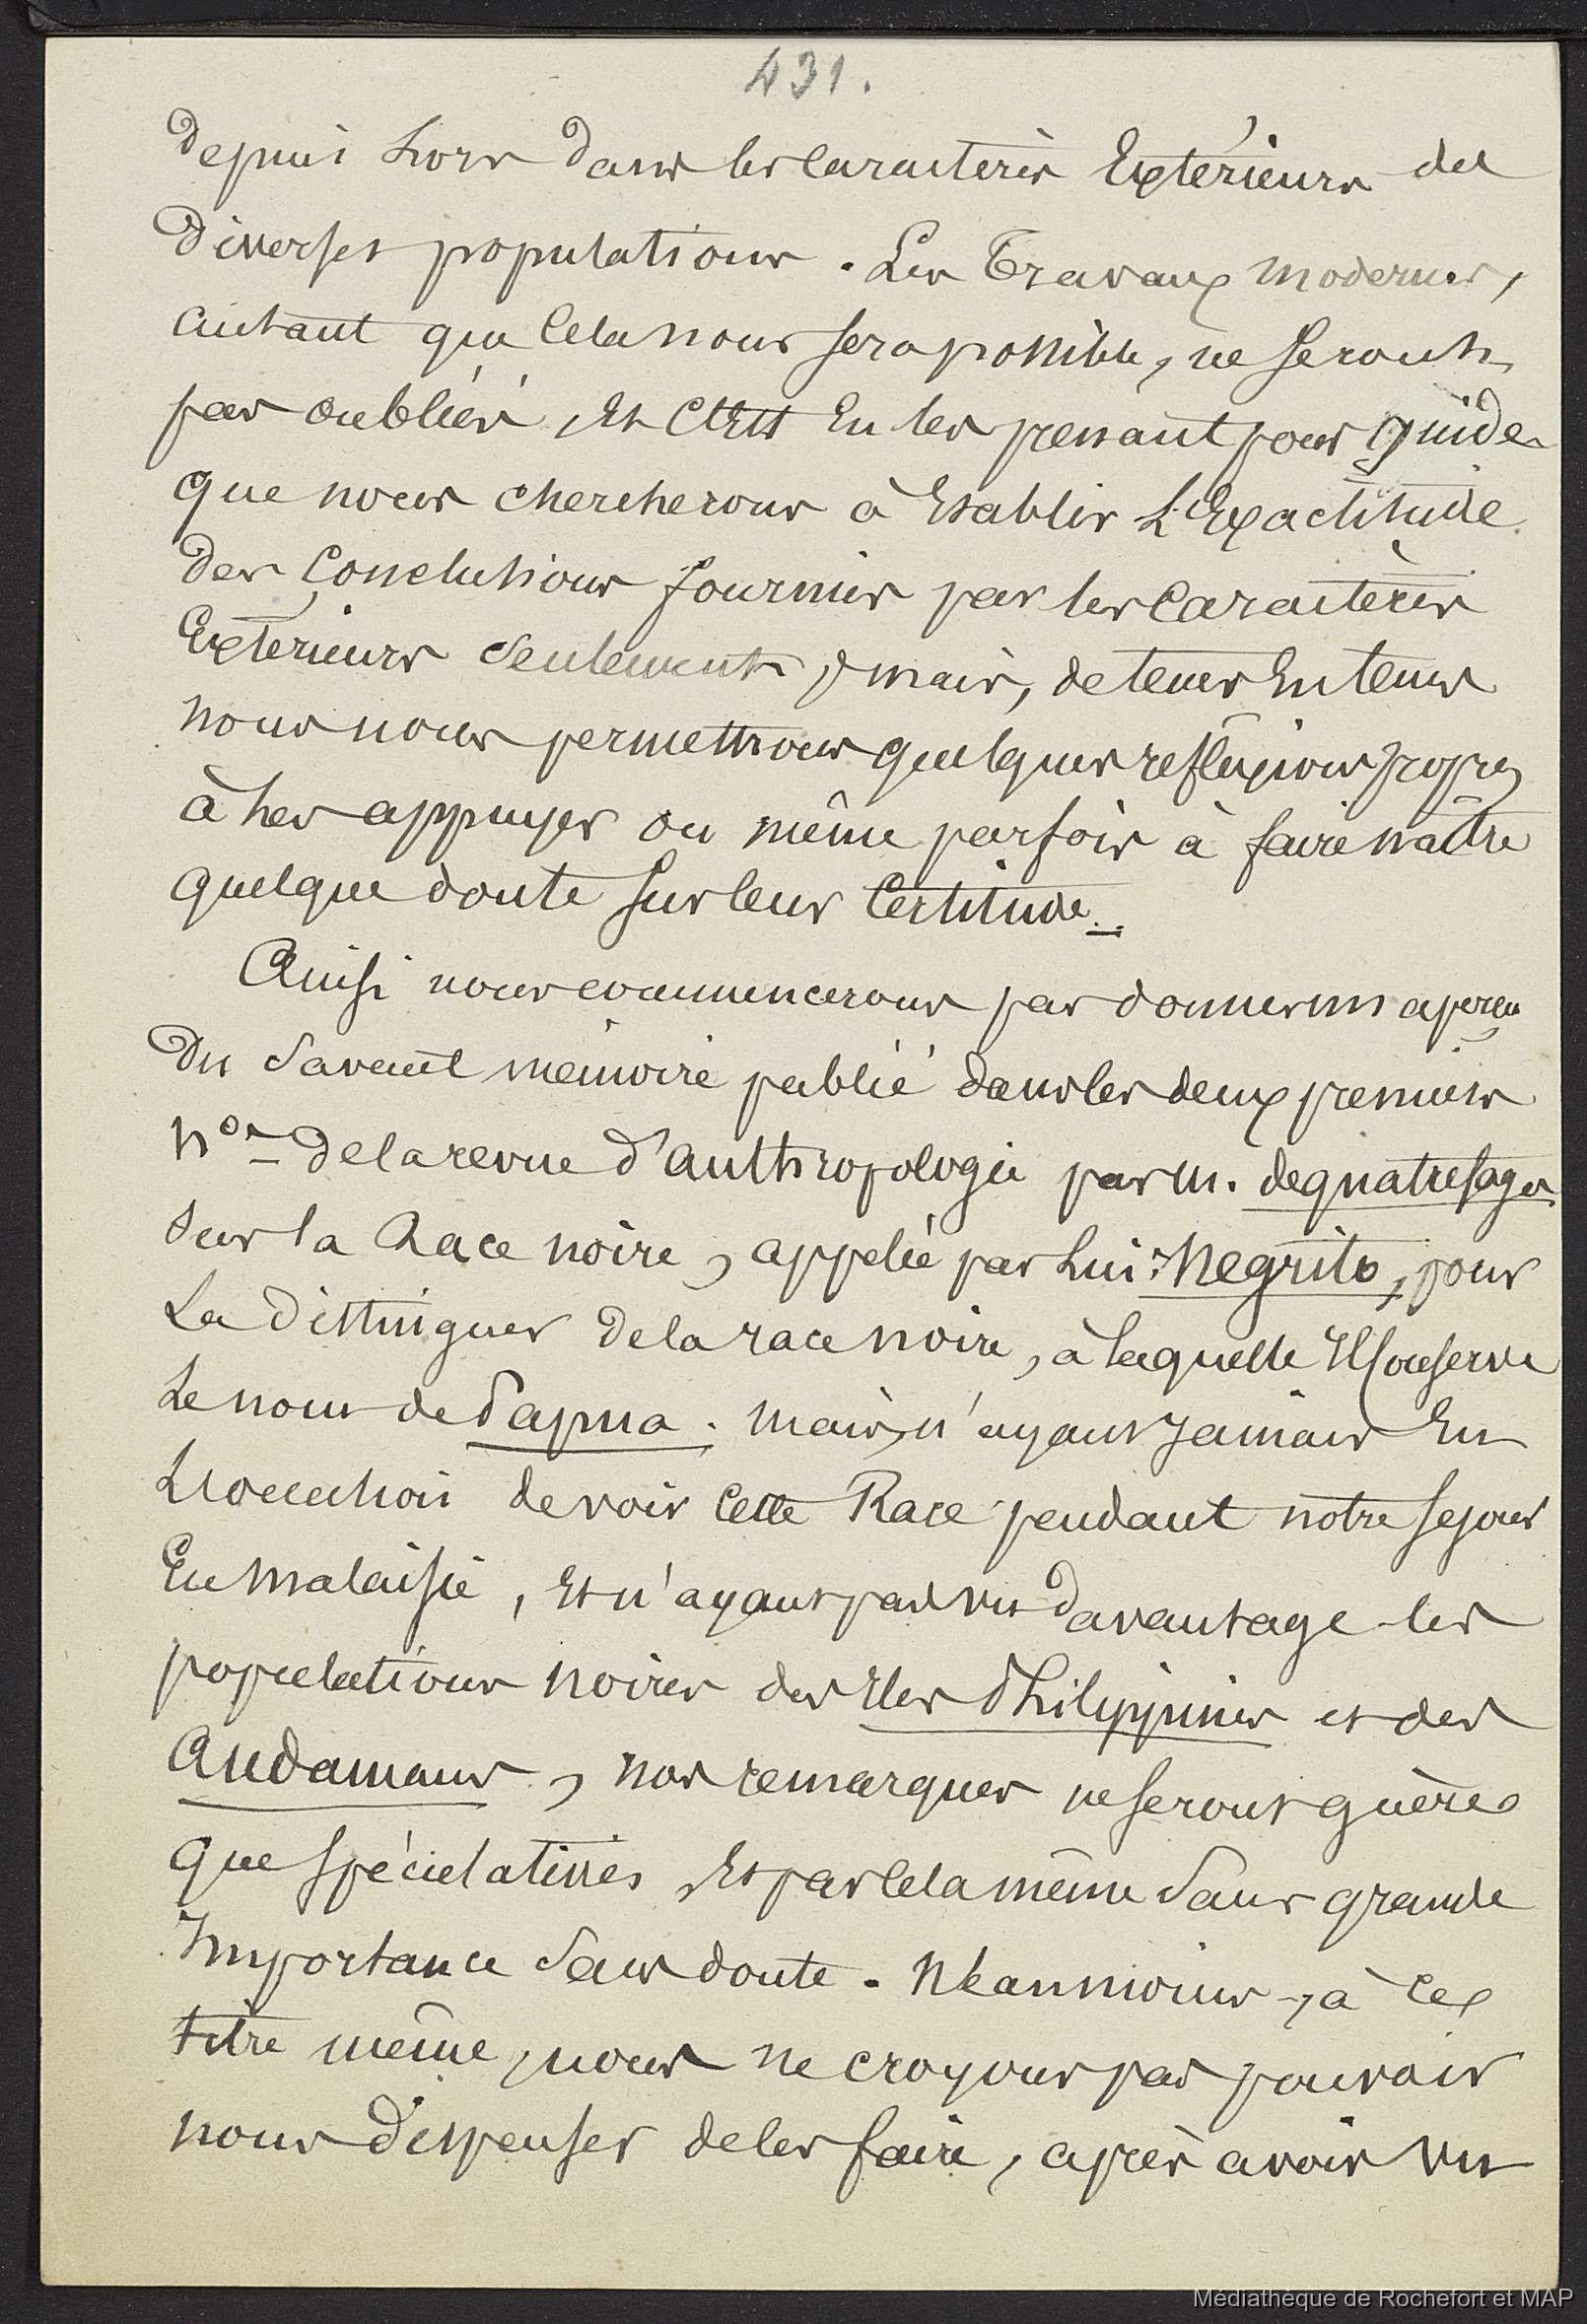 431.
depuis lors dans les caractères Extérieurs des
diverses populations. Les Travaux modernes,
autant que cela nous sera possible, ne seront
pas oubliés, Et c'Est En les prenant pour guide
que nous chercherons à Etablir L'Exactitude
des Conclusions fournies par les Caractères
Extérieurs seulement, mais, de tems En tems
nous nous permettrons quelques reflexions propres
à les appuyer ou même parfois à faire naître
quelque doute sur leur Certitude.
Ainsi nous commencerons par donner un aperçu
du savant mémoire publié dans les deux premiers
Nos de la revue d'anthropologie par M. de quatrefages
sur la Race noire, appelée par lui: Negrito, pour
La distinguer de la race noire, à laquelle Il conserve
Le nom de Papua. mais, n'ayant jamais Eu
L'occasion de voir cette Race pendant notre sejour
En Malaisie, Et n'ayant pas vu davantage les
populations noires des Iles Philippines et des
Andamans, nos remarques ne seront guères
que spéculatives, Et par cela même sans grande
Importance sans doute. Néanmoins, à ce
titre même, nous ne croyons pas pouvoir
nous dispenser de les faire, après avoir vu
Médiathèque de Rochefort et MAP